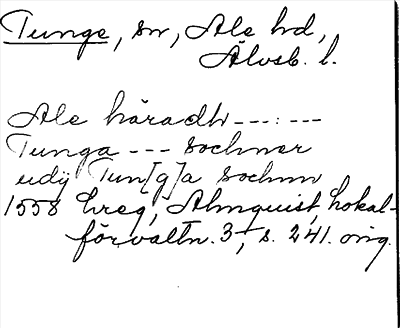 Tunge, sn, Ale hd,
Älvsb. l.
Ale häradh --- : ---
Tunga --- sochner
udij Tun[g]a sochnn
1558 hreg, Almquist, Lokal-
förvaltn. 3, s. 241. orig.